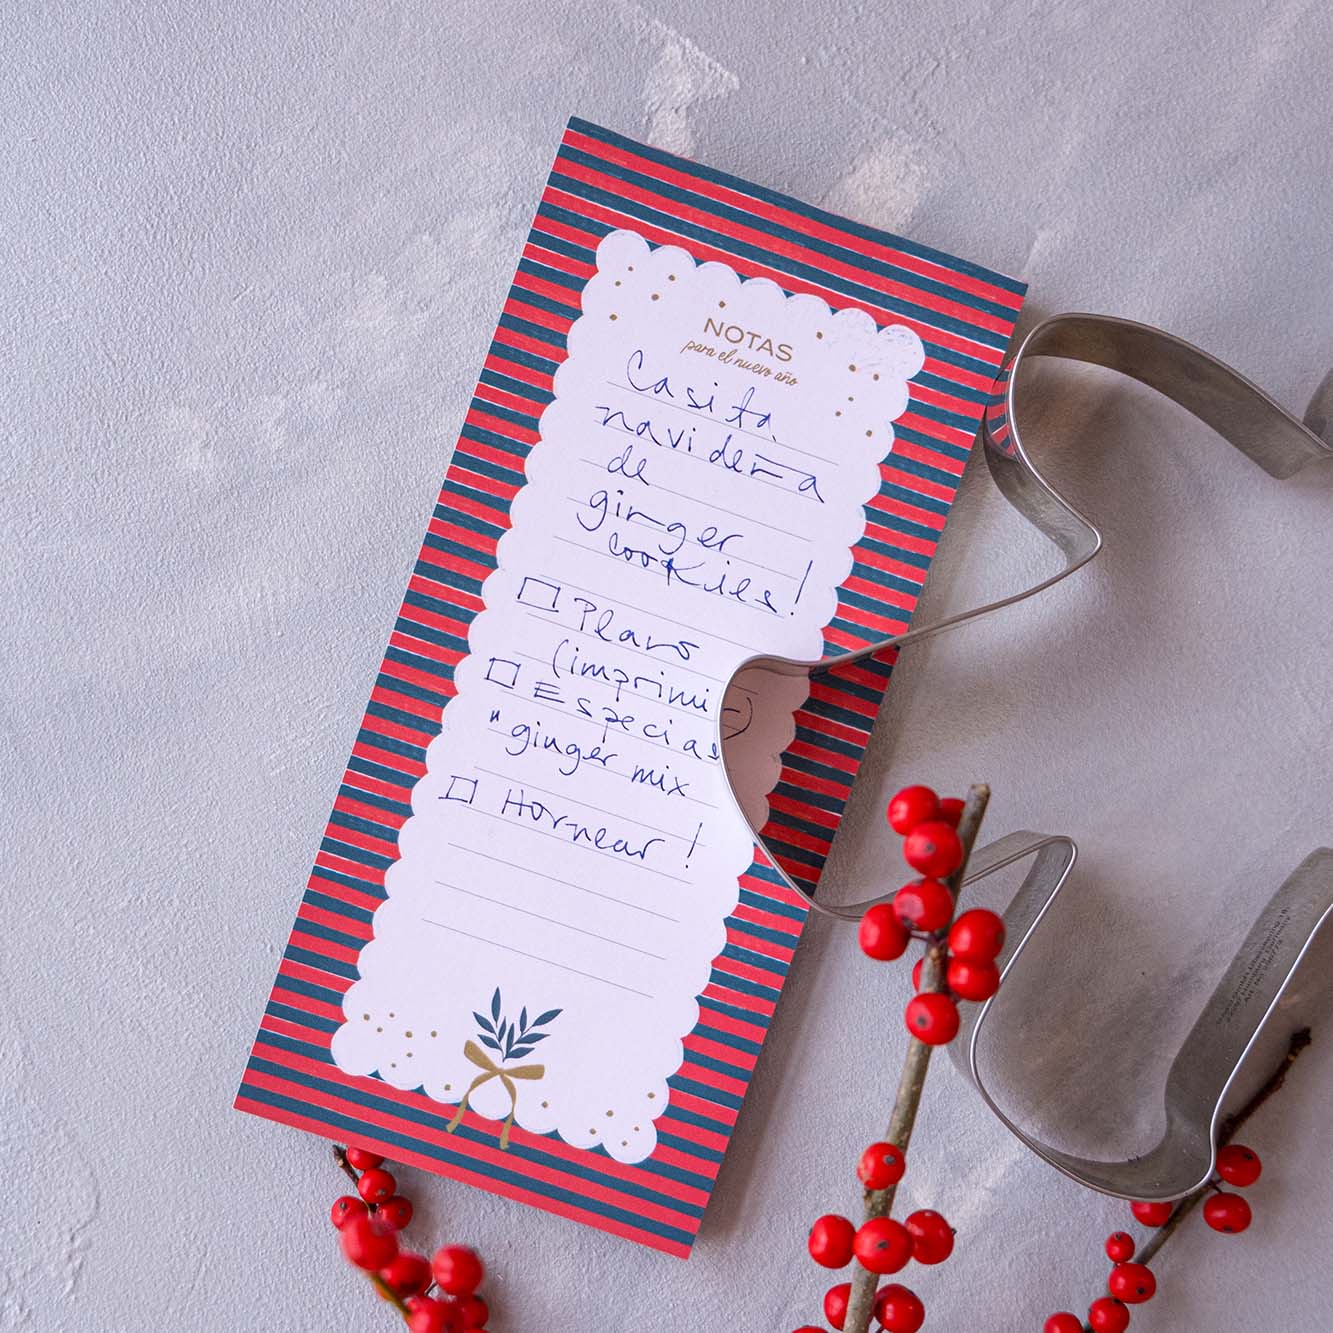 NOTAS
para el nuevo año
Casita
navideña
de
ginger
cookies!
Planos
(imprimir)
Especias
"ginger mix
Hornear!